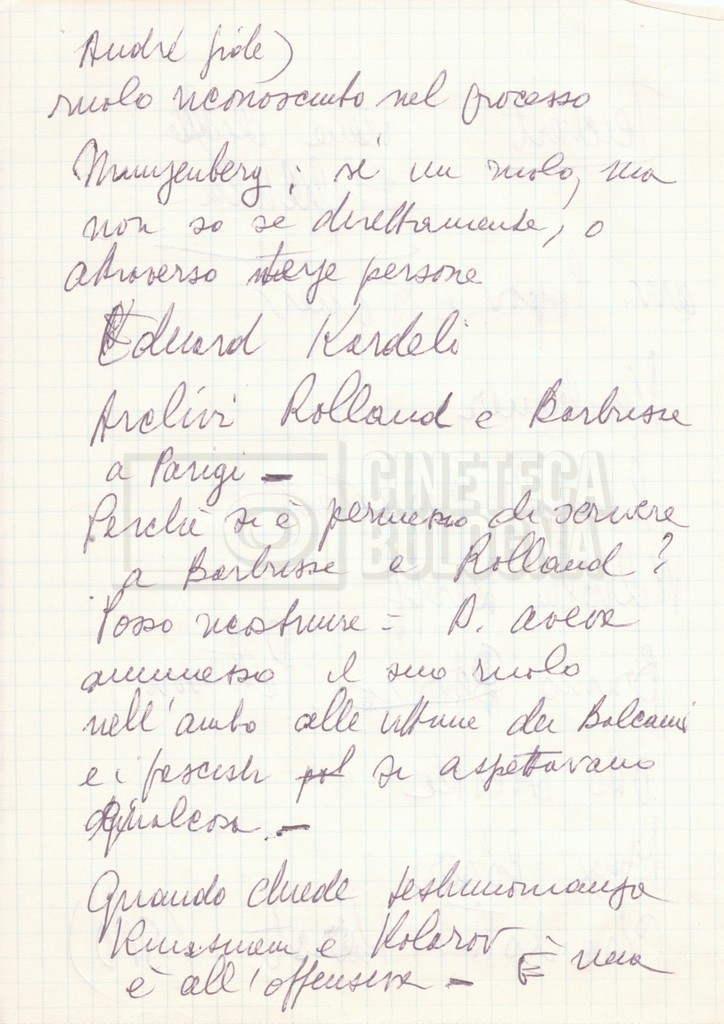 André Gide)
ruolo riconosciuto nel processo
Munzenberg; sì un ruolo, ma
non so se direttamente, o
attraverso terze persone
Eduard Kardeli
Archivi Rolland e Barbusse
a Parigi –
CINETECA
BOLOGNA
Perché si è permesso di scrivere
a Barbusse e Rolland?
Posso ricostruire = D. aveva
ammesso il suo ruolo
nell'aiuto alle vittime dei Balcani
e i fascisti si aspettavano
qualcosa. –
Quando chiede testimonianza
e Kolarov È una
è all'offensiva –